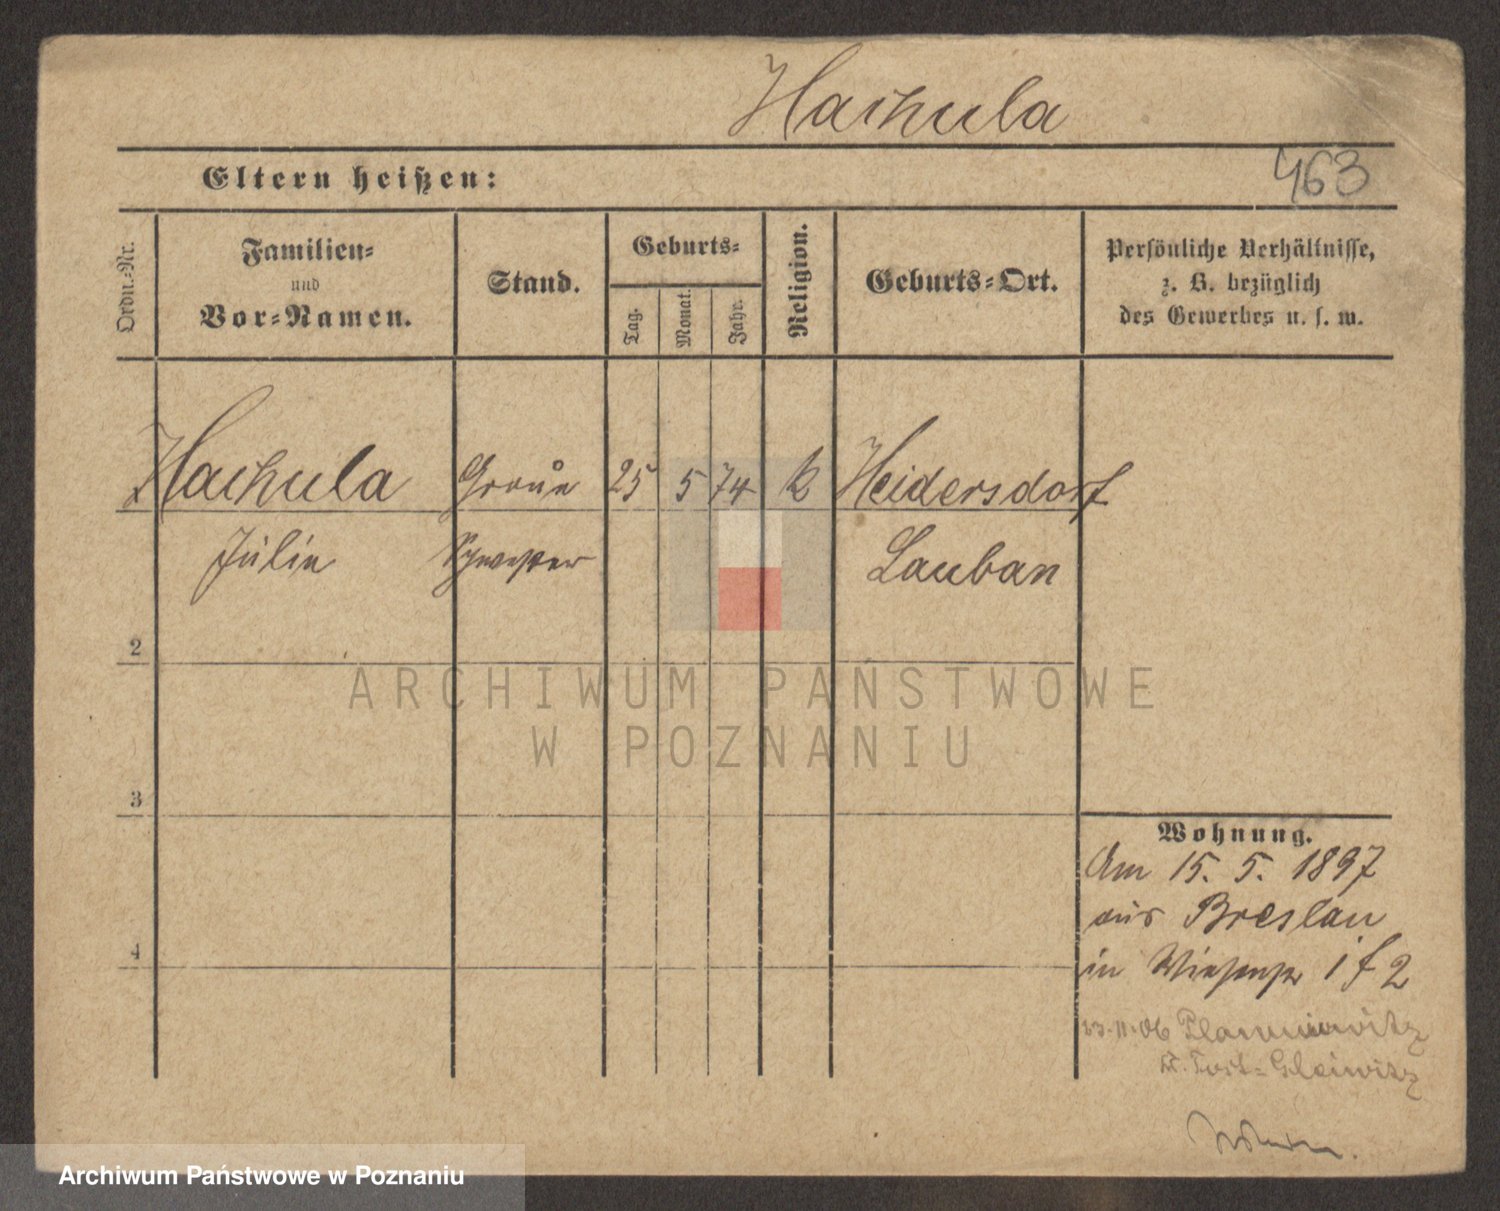 Hachula
Eltern heißen:
463
Ordn.-Nr.
Familien-
und
Vor-Namen.
Stand.
Geburts-
Tag.
Monat.
Jahr.
Religion.
Geburts-Ort.
Persönliche Verhältnisse,
z. B. bezüglich
des Gewerbes u. s. w.
Hachula
Graue
25
5
74
k
Heidersdorf
Julie
Schwester
Lauban
2
3
4
ARCHIWUM PAŃSTWOWE
W POZNANIU
Wohnung.
Am 15. 5. 1897
aus Breslau
in Wiesenstr 1 f 2
23.11.06 Plawniowitz
Kr. Tost-Gleiwitz
Archiwum Państwowe w Poznaniu